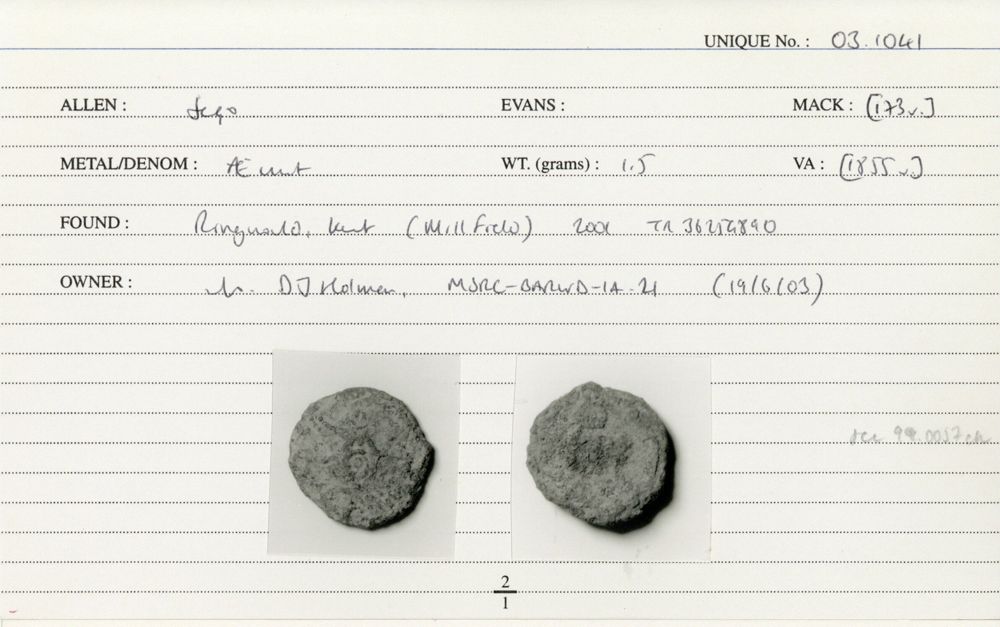 UNIQUE No. : 03.1041
ALLEN : Sego EVANS : MACK : [173v.]
METAL/DENOM : Æ unit WT. (grams) : 1.5 VA : [1855 v.]
FOUND : Ringwould, Kent (Mill Field) 2001 TR 36254890
OWNER : D J Holman, (19/6/03)
2
1